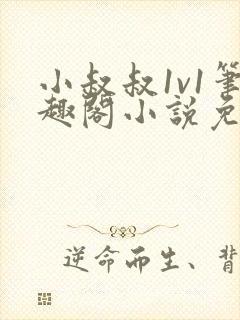 小叔叔1v1筆
趣閣小說免
逆命而生、背